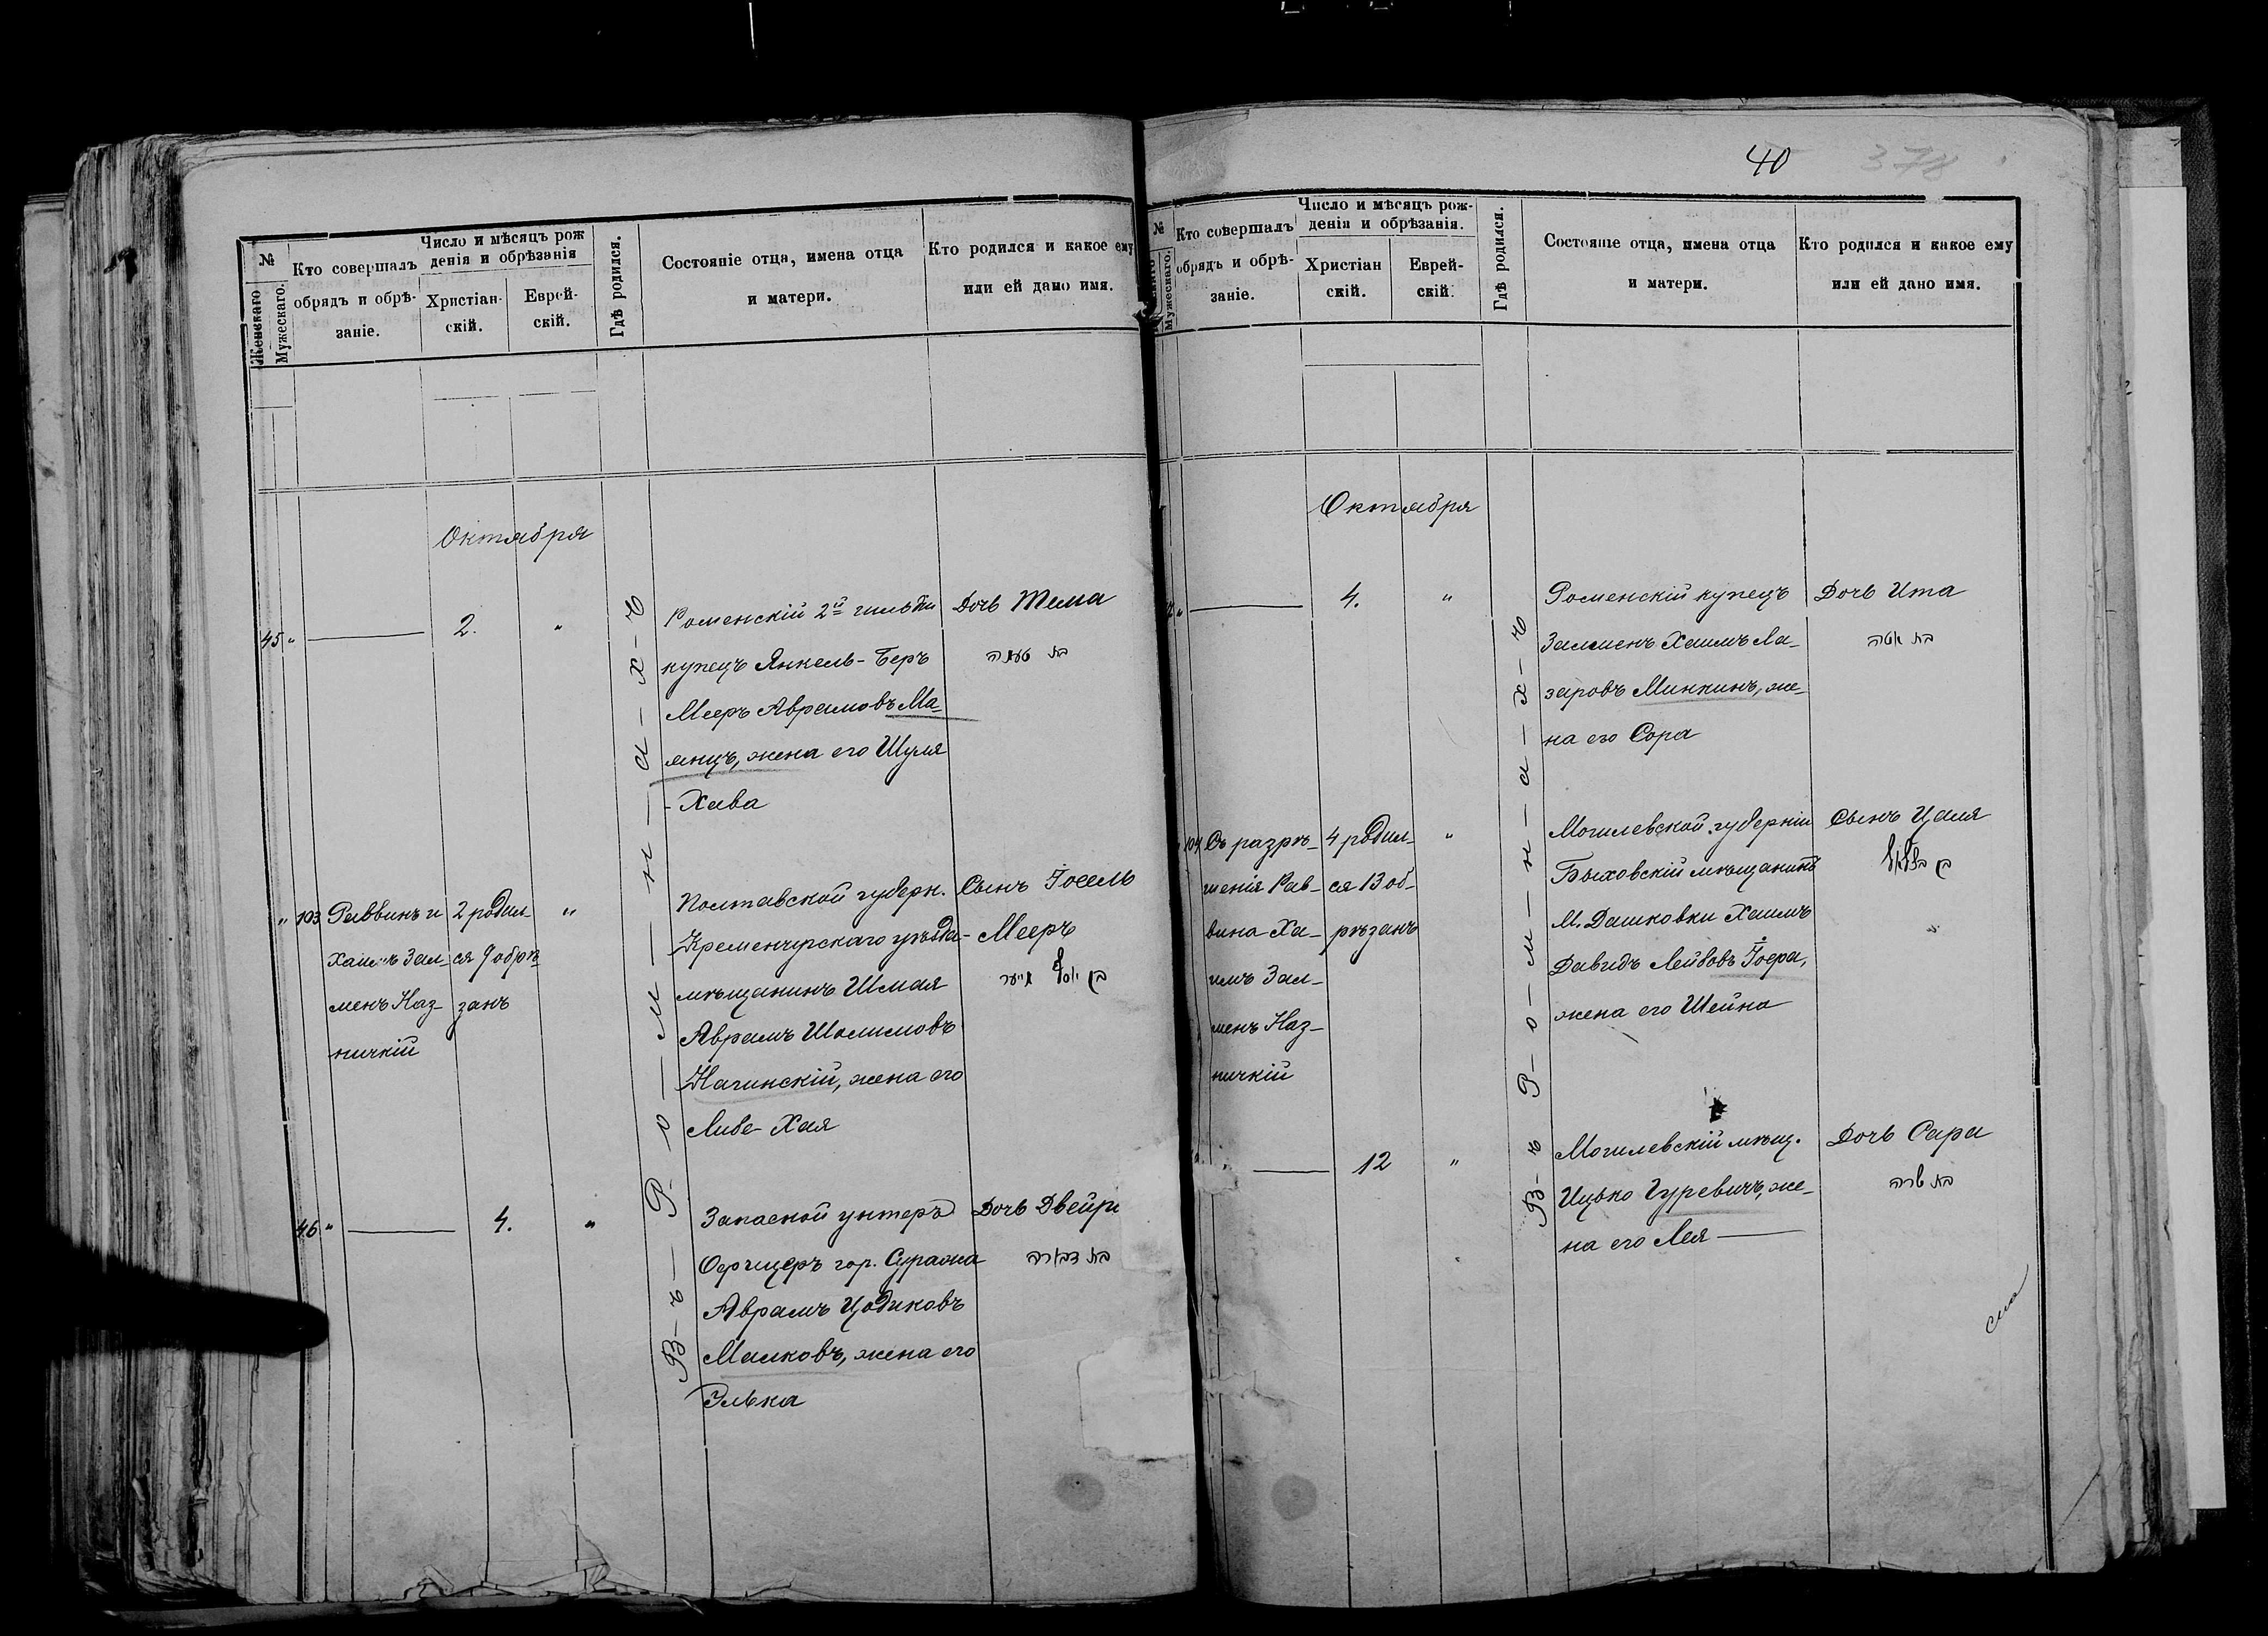 №
Женскаго
Мужескаго.
Кто совершалъ
обрядъ и обрѣ-
заніе.
Число и мѣсяцъ рож
денія и обрѣзанія
Христіан-
скій.
Еврей-
скій.
Гдѣ родился.
Состояніе отца, имена отца
и матери.
Кто родился и какое ему
или ей дано имя.
Октября
45 "
2.
"
Роменскій 2й гильдіи
купецъ Янкель-Беръ
Мееръ Аврамовъ Ма-
янцъ, жена его Шуля
-Хава
Дочь Тема
בת טעמה
" 103
Раввинъ и
Хаимъ Зал-
менъ Наз-
ничкій
2 родил-
ся 9 обрѣ-
занъ
"
Полтавской губерн.
Кременчугскаго уѣзда
мѣщанинъ Шмая
Аврамъ Шолимовъ
Нагинскій, жена его
Либе-Хая
Сынъ Іосель
-Мееръ
בן יוסף מייער
46 "
4.
"
Запасной унтеръ
Офицеръ гор. Суража
Аврамъ Цодиковъ
Малковъ, жена его
Элька
Дочь Двейр
בת דבורה
Въ - Р - о - м - н - а - х - ъ
40
378
№
Мужескаго.
Кто совершалъ
обрядъ и обрѣ-
заніе.
Число и мѣсяцъ рож-
денія и обрѣзанія.
Христіан
скій.
Еврей-
скій.
Гдѣ родился.
Состояніе отца, имена отца
и матери.
Кто родился и какое ему
или ей дано имя.
Октября
4.
"
Роменскій купецъ
Залменъ Хаимъ Ла-
заровъ Минкинъ, же-
на его Сора
Дочь Ита
בת איטה
104
Съ разрѣ-
шенія Рав-
вина Ха-
имъ Зал-
менъ Наз-
ничкій
4 родил-
ся 13 об-
рѣзанъ
"
Могилевской губерніи
Быховскій мѣщанинъ
М. Дашковки Хаимъ
Давидъ Лейбовъ Іоера,
жена его Шейна
Сынъ Цаля
בן בצלאל
12
"
Могилевскій мѣщ.
Ицько Гуревичъ, же-
на его Лея
Дочь Сара
בת שרה
Въ Р - о - м - н - а - х - ъ